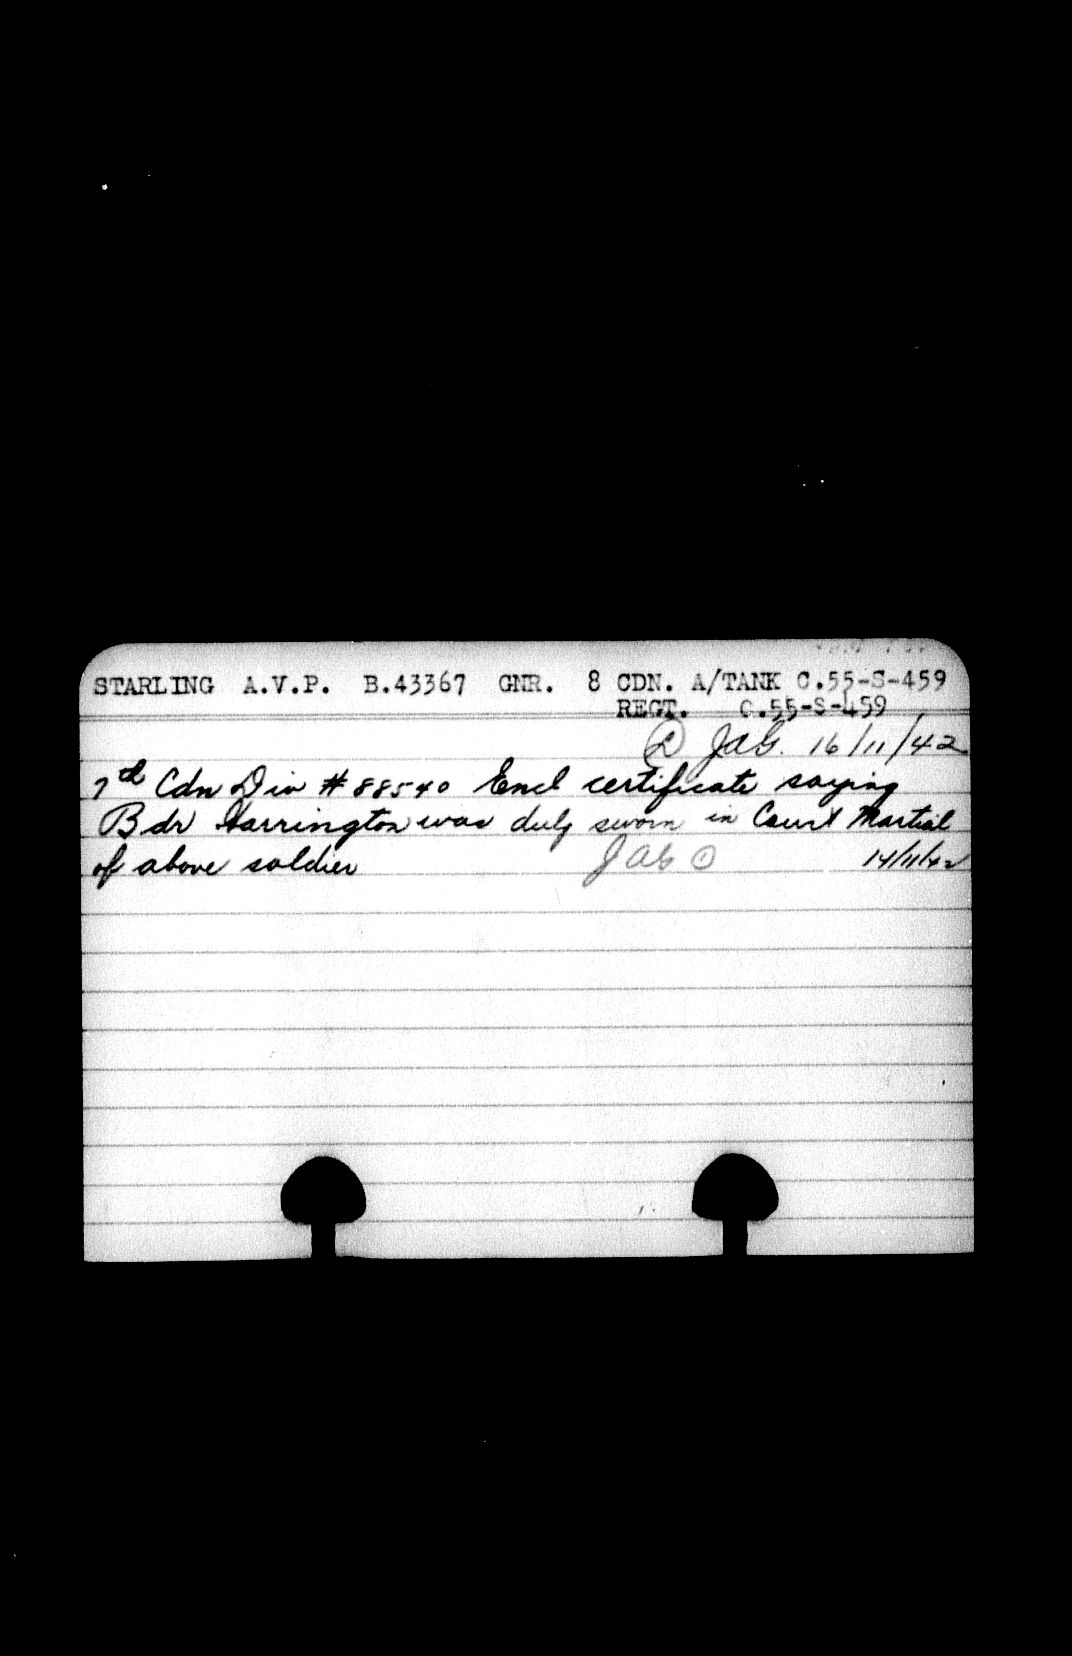 STARLING A.V.P. B.43367 GNR. 8 CDN. A/TANK C.55-S-459
REGT. C.55-S-459
JAG. 16/11/42
7th Cdn Div # 88540 Encl certificate saying
Bdr Harrington was duly sworn in Court Martial
of above soldier JAG ① 14/11/42